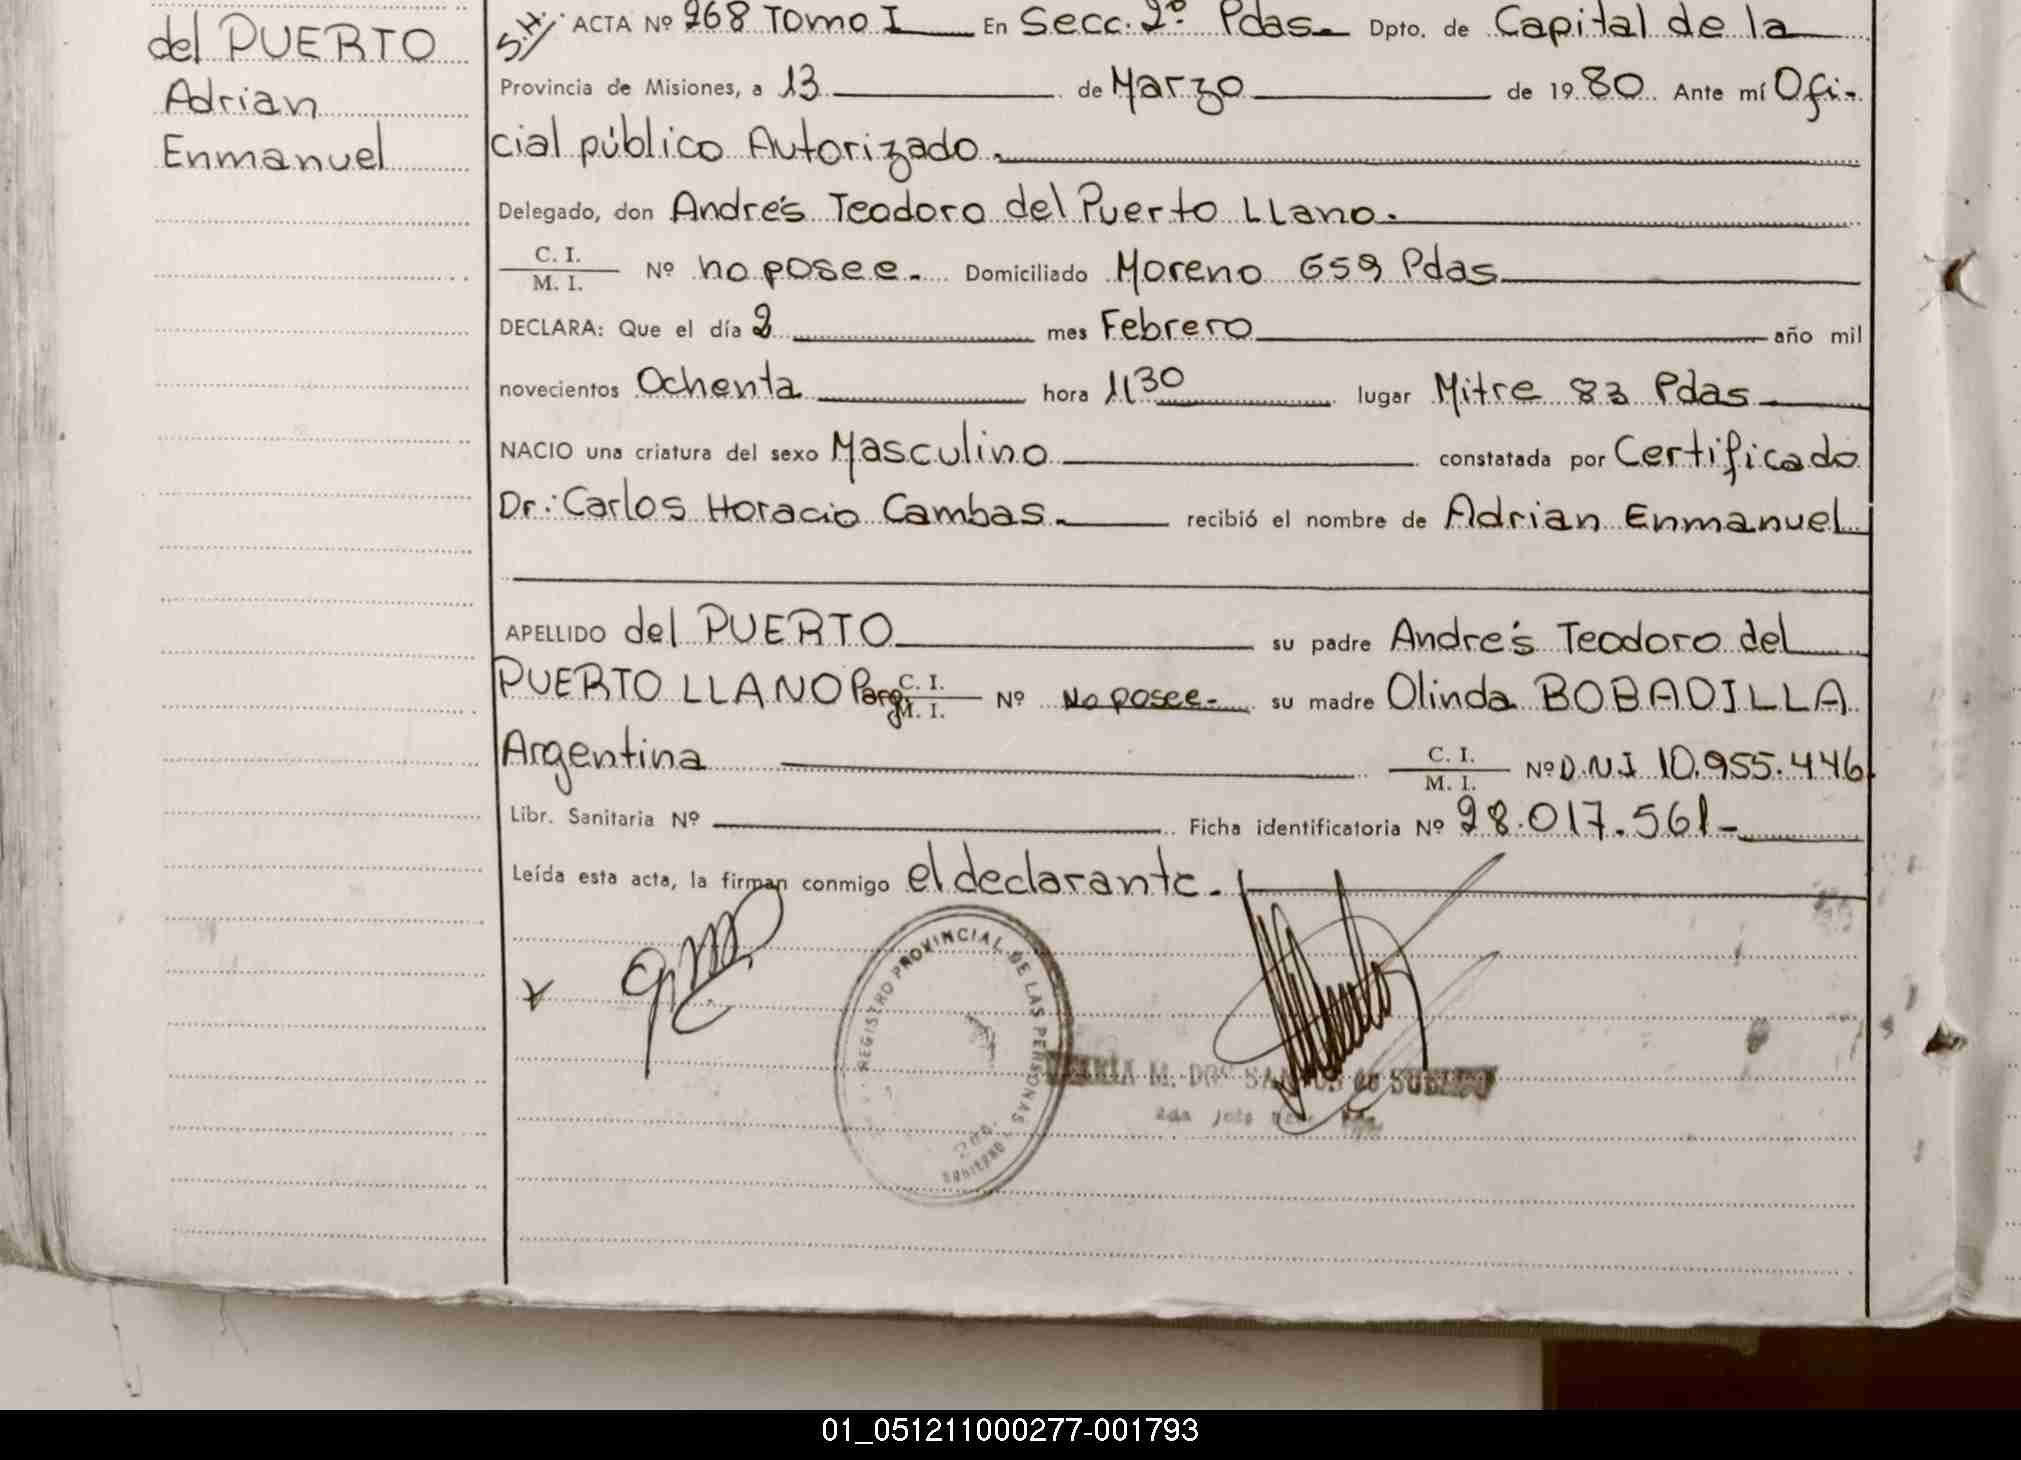 del PUERTO
Adrian
Enmanuel
S.H. ACTA Nº 268 Tomo I En Secc. 2º Pdas. Dpto. de Capital de la
Provincia de Misiones, a 13 de Marzo de 1980 Ante mí Ofi-
cial público Autorizado.
Delegado, don Andrés Teodoro del Puerto LLano.
C. I.
M. I. Nº no posee. Domiciliado Moreno 659 Pdas
DECLARA: Que el día 2 mes Febrero año mil
novecientos Ochenta hora 1130 lugar Mitre 83 Pdas
NACIO una criatura del sexo Masculino constatada por Certificado
Dr.: Carlos Horacio Cambas. recibió el nombre de Adrian Enmanuel
APELLIDO del PUERTO su padre Andrés Teodoro del
PUERTO LLANO Parg. C. I. M. I. Nº No posee- su madre Olinda BOBADILLA
Argentina C. I. M. I. Nº D.N.I 10.955.446
Libr. Sanitaria Nº Ficha identificatoria Nº 28.017.561-
Leída esta acta, la firman conmigo el declarante.
REGISTRO PROVINCIAL DE LAS PERSONAS
MARIA M. DOS SANTOS de
2da
01_051211000277-001793